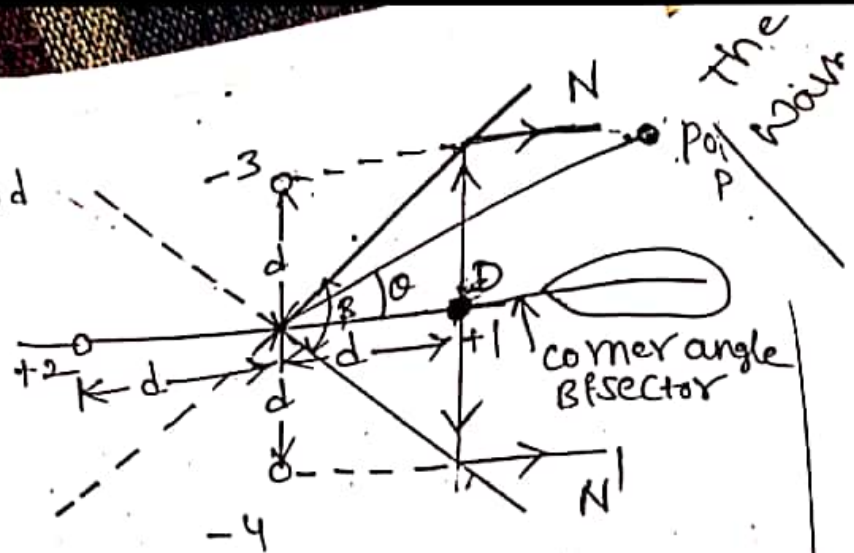 The
wave
N
-3
Poi
P
d
d
D
θ
β
+1
d
corner angle
Bisector
+2
d
d
N'
-4